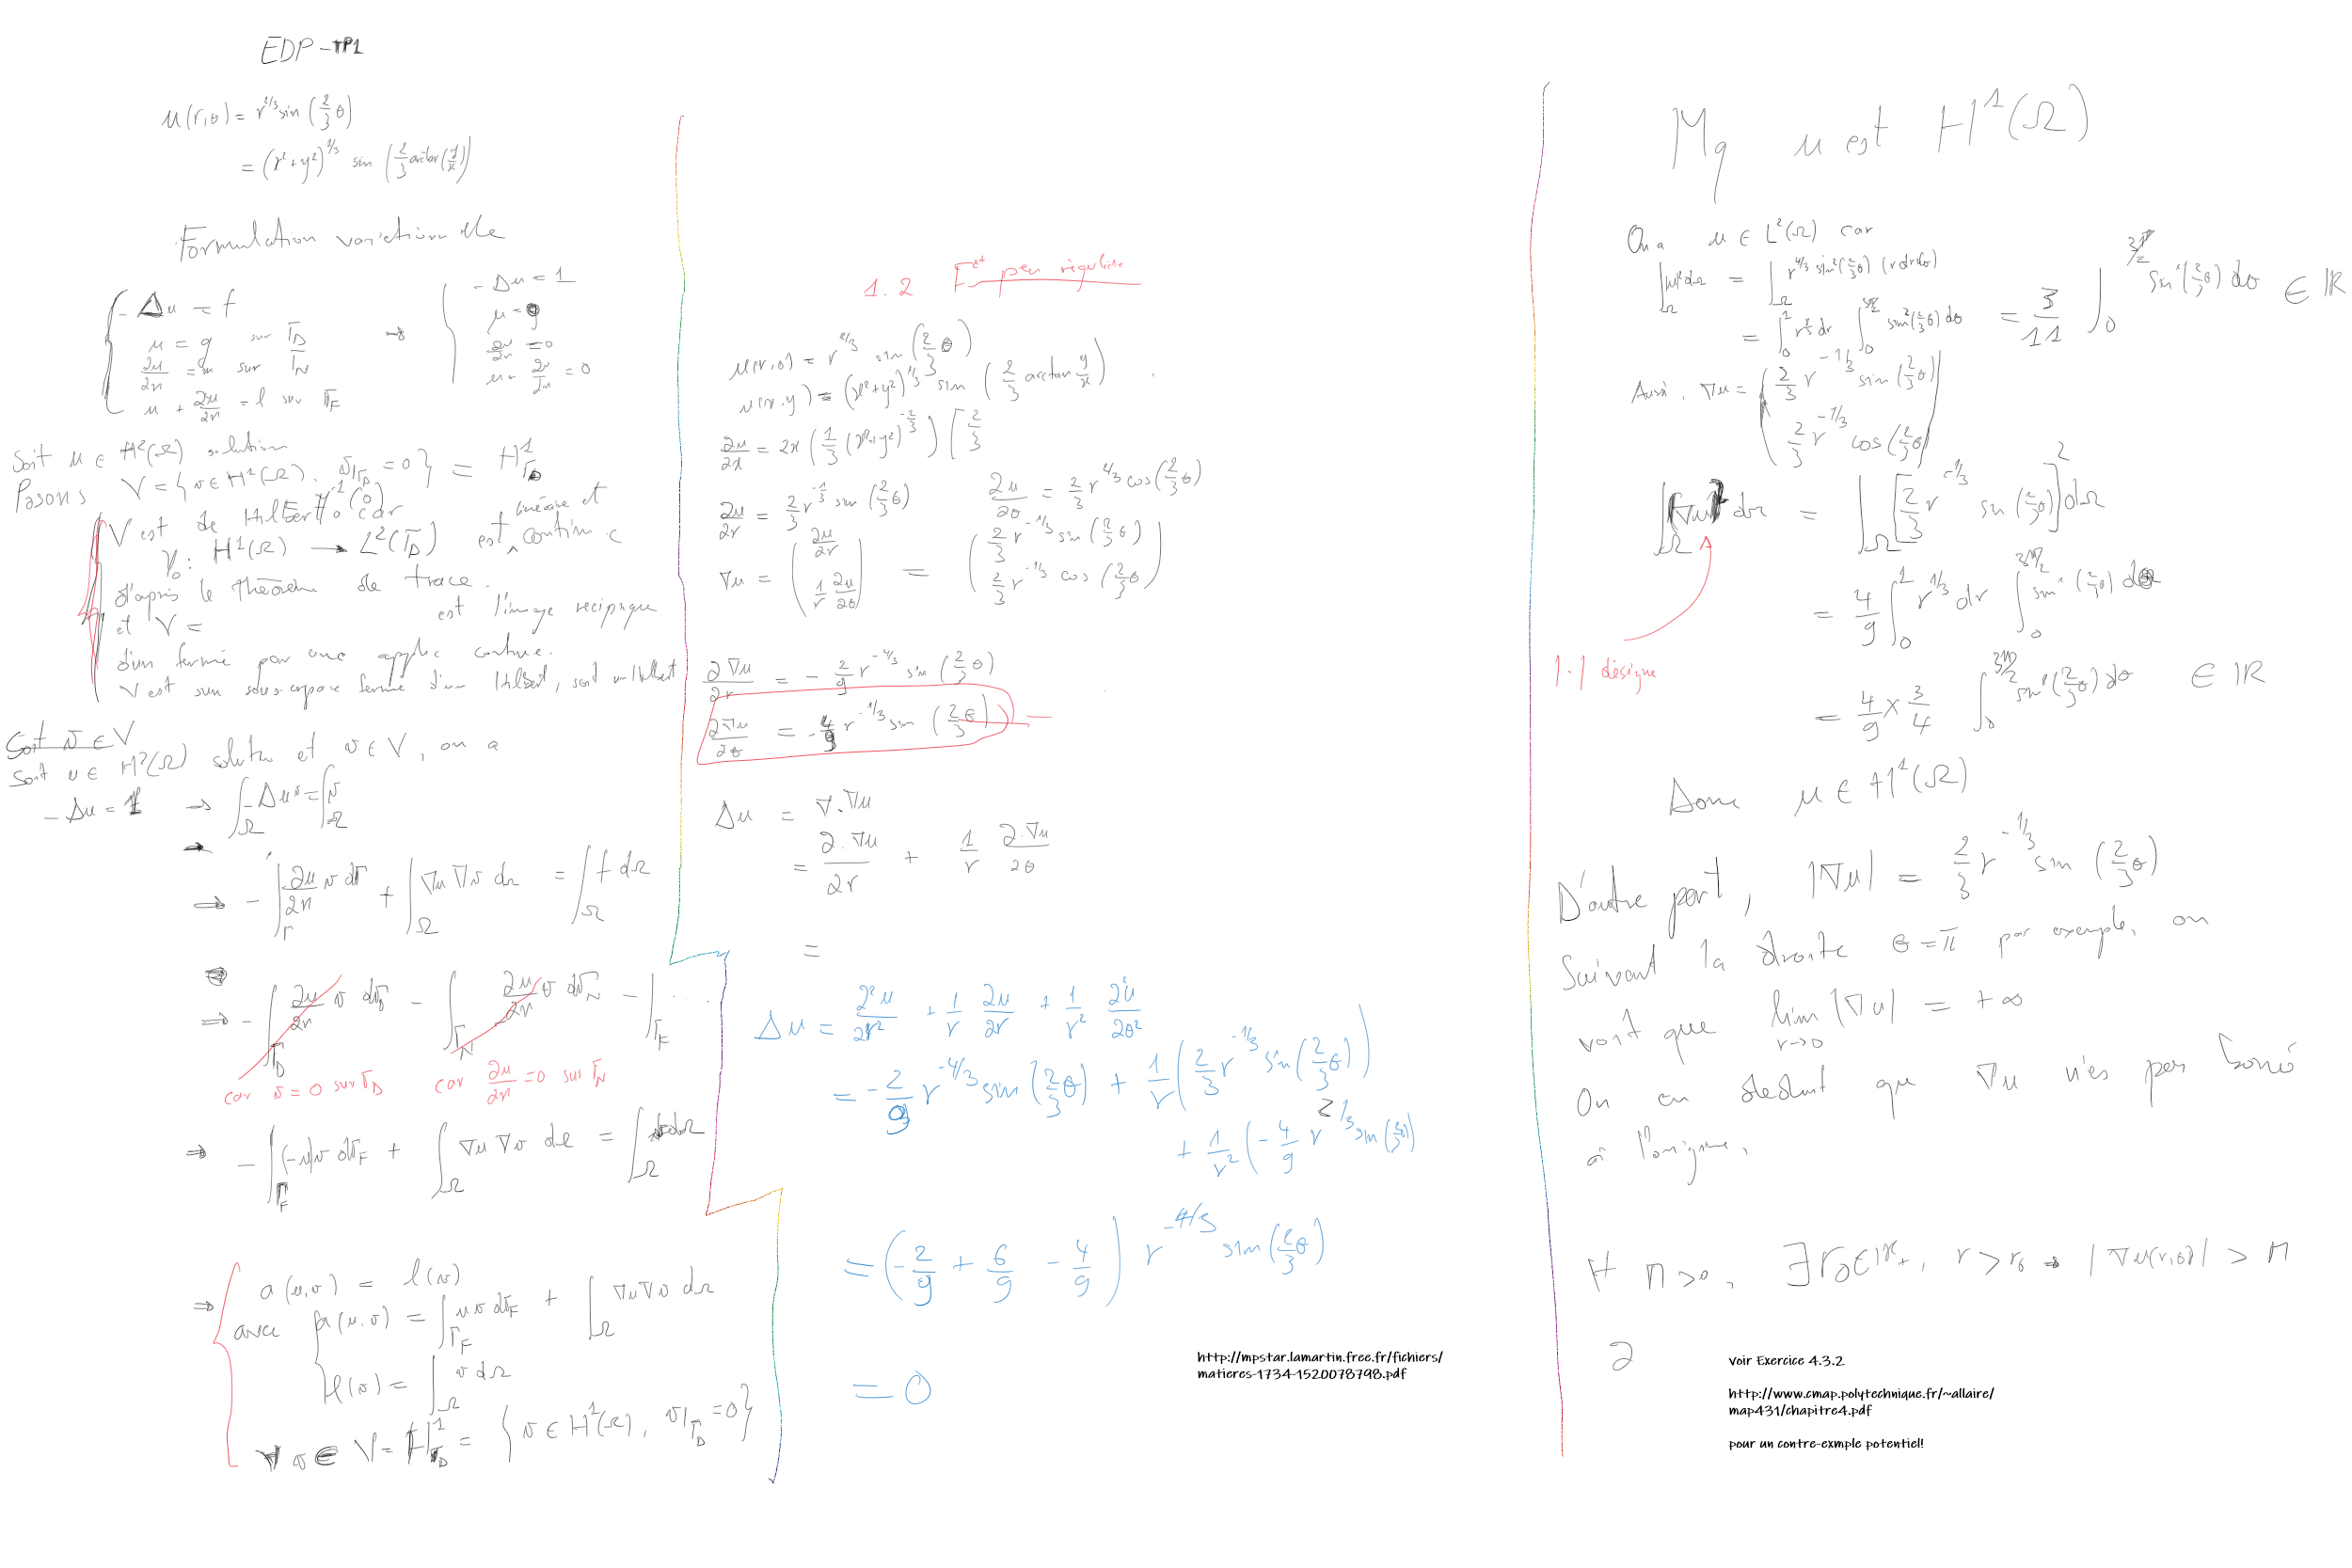 EDP - TP1
u(r,θ) = r^{2/3} sin (2/3 θ)
= (x² + y²)^{1/3} sin (2/3 arctan(y/x))
Formulation variationnelle
{ - Δu = f
u = g sur Γ_D
∂u/∂n = m sur Γ_N
u + ∂u/∂n = l sur Γ_F
→ { - Δu = 1
u = 0
∂u/∂n = 0
u + ∂u/∂n = 0
Soit u ∈ H²(Ω) solution
Posons V = { v ∈ H¹(Ω), v|Γ_D = 0 } = H¹_{Γ_D}
V est de Hilbert car
γ_0^{-1}(0)
γ_0 : H¹(Ω) → L²(Γ_D) est linéaire et continue
d'après le théorème de trace.
et V = est l'image reciproque
d'un fermé par une applic continue.
V est un sous espace fermé d'un Hilbert, soit un Hilbert
Soit v ∈ V
Soit u ∈ H²(Ω) solution et v ∈ V, on a
- Δu = 1 ⇒ ∫_Ω - Δu v = ∫_Ω v
⇒ - ∫_Γ ∂u/∂n v dΓ + ∫_Ω ∇u ∇v dΩ = ∫_Ω f dΩ
⇒ - ∫_{Γ_D} ∂u/∂n v dΓ_D - ∫_{Γ_N} ∂u/∂n v dΓ_N - ∫_{Γ_F} ....
car v = 0 sur Γ_D car ∂u/∂n = 0 sur Γ_N
⇒ - ∫_{Γ_F} (-u)v dΓ_F + ∫_Ω ∇u ∇v dΩ = ∫_Ω v dΩ
⇒ { a(u,v) = l(v)
avec { a(u,v) = ∫_{Γ_F} u v dΓ_F + ∫_Ω ∇u ∇v dΩ
l(v) = ∫_Ω v dΩ
∀ v ∈ V = H¹_{Γ_D} = { v ∈ H¹(Ω), v|Γ_D = 0 }
1.2 F^{ct} peu régulière
u(r,θ) = r^{2/3} sin (2/3 θ)
u(x,y) = (x² + y²)^{1/3} sin (2/3 arctan y/x)
∂u/∂x = 2x (1/3 (x² + y²)^{-2/3}) [2/3
∂u/∂r = 2/3 r^{-1/3} sin (2/3 θ) ∂u/∂θ = 2/3 r^{2/3} cos(2/3 θ)
∇u = (∂u/∂r , 1/r ∂u/∂θ) = (2/3 r^{-1/3} sin (2/3 θ) , 2/3 r^{-1/3} cos (2/3 θ))
∂∇u/∂r = - 2/9 r^{-4/3} sin (2/3 θ)
∂∇u/∂θ = - 4/9 r^{-1/3} sin (2/3 θ)
Δu = ∇.∇u
= ∂.∇u/∂r + 1/r ∂.∇u/∂θ
=
Δu = ∂²u/∂r² + 1/r ∂u/∂r + 1/r² ∂²u/∂θ²
= - 2/9 r^{-4/3} sin (2/3 θ) + 1/r (2/3 r^{-1/3} sin (2/3 θ))
+ 1/r² (- 4/9 r^{2/3} sin(2/3 θ))
= (- 2/9 + 6/9 - 4/9) r^{-4/3} sin(2/3 θ)
= 0
http://mpstar.lamartin.free.fr/fichiers/
matieres-1734-1520078798.pdf
Mq u est H¹(Ω)
On a u ∈ L²(Ω) car
∫_Ω |u|² dΩ = ∫_Ω r^{4/3} sin²(2/3 θ) (r dr dθ)
= ∫_0^1 r^{7/3} dr ∫_0^{3π/2} sin²(2/3 θ) dθ = 3/11 ∫_0^{3π/2} sin²(2/3 θ) dθ ∈ ℝ
Aussi, ∇u = (2/3 r^{-1/3} sin(2/3 θ) , 2/3 r^{-1/3} cos(2/3 θ))
∫_Ω |∇u|² dΩ = ∫_Ω [2/3 r^{-1/3} sin (2/3 θ)]² dΩ
= 4/9 ∫_0^1 r^{1/3} dr ∫_0^{3π/2} sin² (2/3 θ) dθ
1.1 désigne
= 4/9 × 3/4 ∫_0^{3π/2} sin²(2/3 θ) dθ ∈ ℝ
Donc u ∈ H¹(Ω)
D'autre part, |∇u| = 2/3 r^{-1/3} sin (2/3 θ)
Suivant la droite θ = π par exemple, on
voit que lim_{r→0} |∇u| = +∞
On en déduit que ∇u n'es pas borné
à l'origine.
∀ n > 0, ∃ r_0 ∈ ℝ_+, r > r_0 ⇒ |∇u(r,θ)| > n
∂
voir Exercice 4.3.2
http://www.cmap.polytechnique.fr/~allaire/
map431/chapitre4.pdf
pour un contre-exmple potentiel!